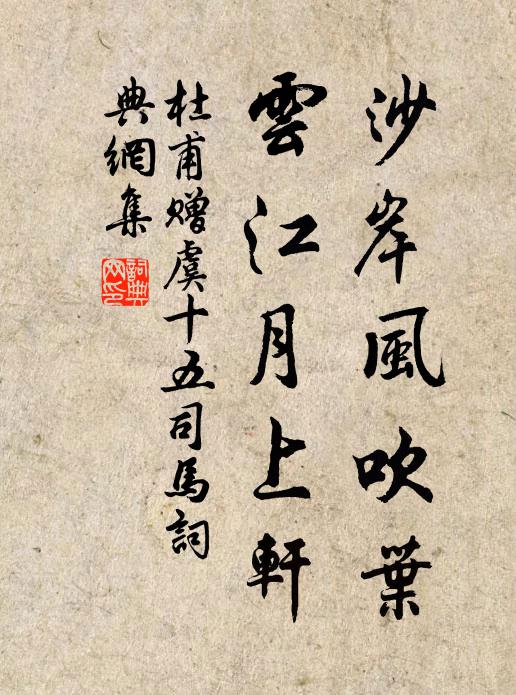 沙岸風吹葉
雲江月上軒
杜甫赠虞十五司馬詞
典網集
詞典
网印